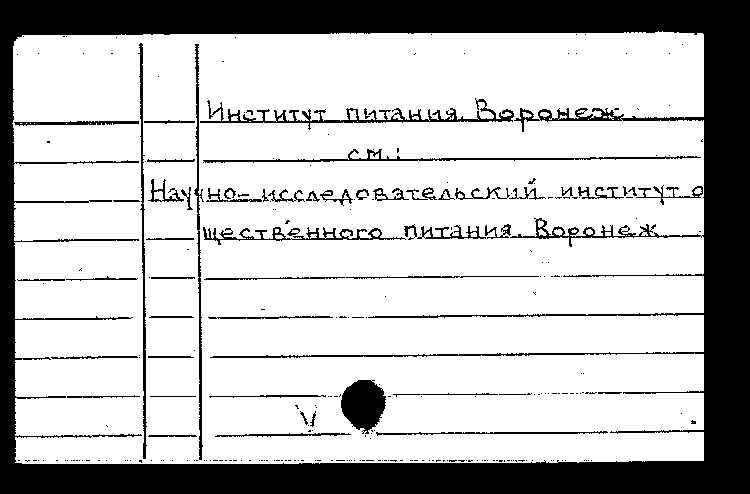 Институт питания. Воронеж.
см.:
Научно-исследовательский институт о
щественного питания. Воронеж
V